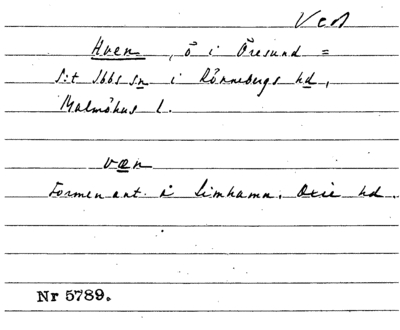 Hven, ö i Öresund =
S:t Ibbs sn i Rönnebergs hd,
Malmöhus l.
væn
Formen ant. å Limhamn, Oxie hd.
Nr 5789.